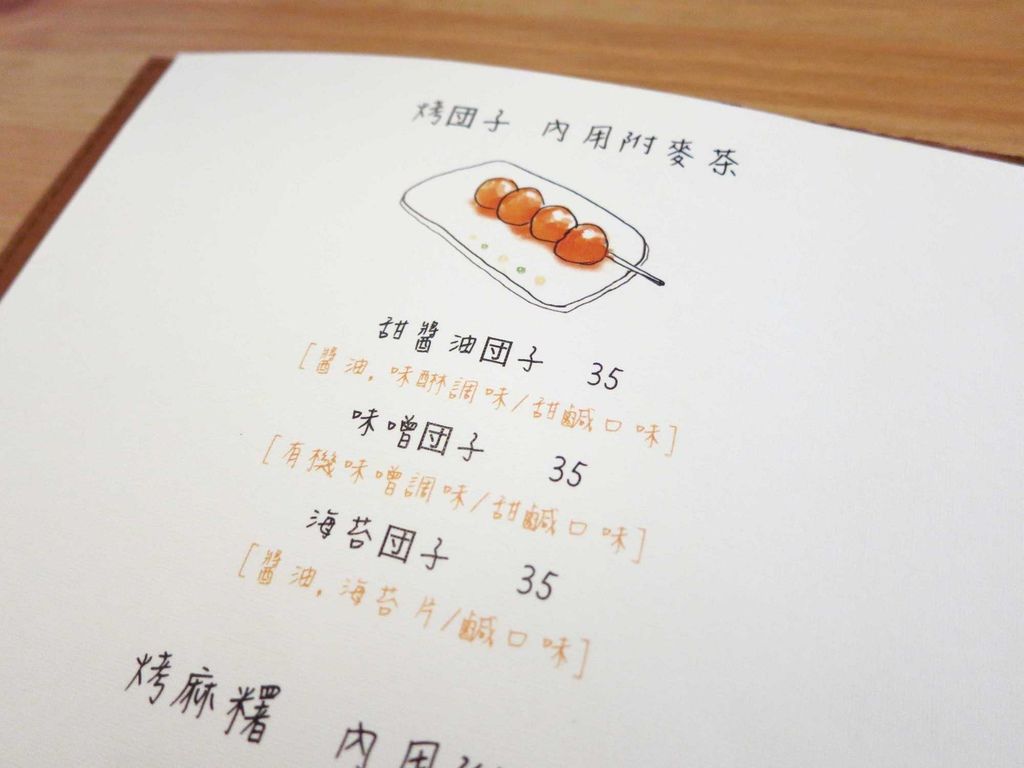 烤団子 內用附麥茶
甜醬油団子 35
[醬油,味醂調味/甜鹹口味]
味噌団子 35
[有機味噌調味/甜鹹口味]
海苔団子 35
[醬油,海苔片/鹹口味]
烤麻糬 內用